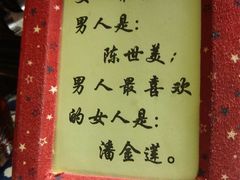 男人是：
陈世美；
男人最喜欢
的女人是：
潘金莲。